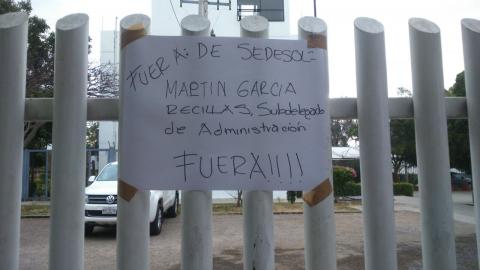 FUERA: DE SEDESOL=
MARTIN GARCIA
RECILLAS, Subdelegado
de Administración
FUERA!!!!